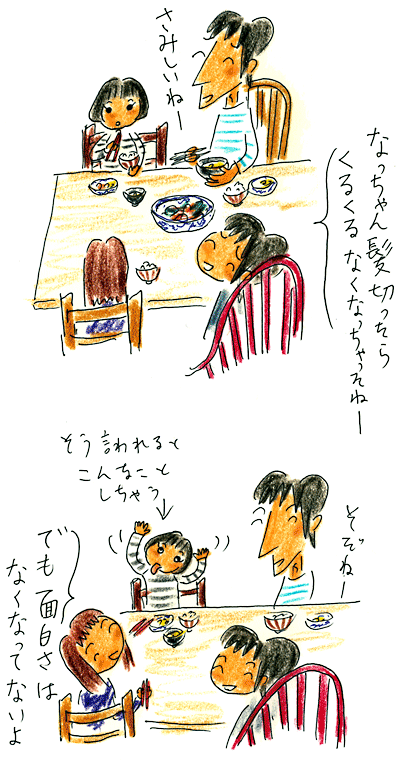 なっちゃん髪切ったら
くるくるなくなっちゃったねー
さみしいねー
そう言われると
こんなこと
しちゃう
そぞねー
でも面白さは
なくなってないよ